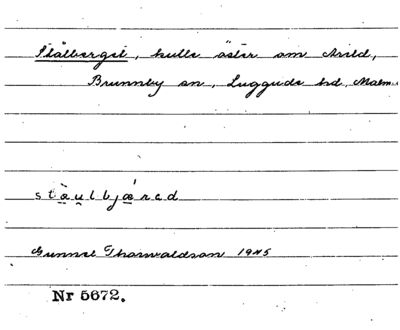 Stålberget, kulle öster om Arild,
Brunnby sn, Luggude hd, Malm
stàu̯lbjæ̀rєd
Gunnel Thorwaldson 1945
Nr 5672.